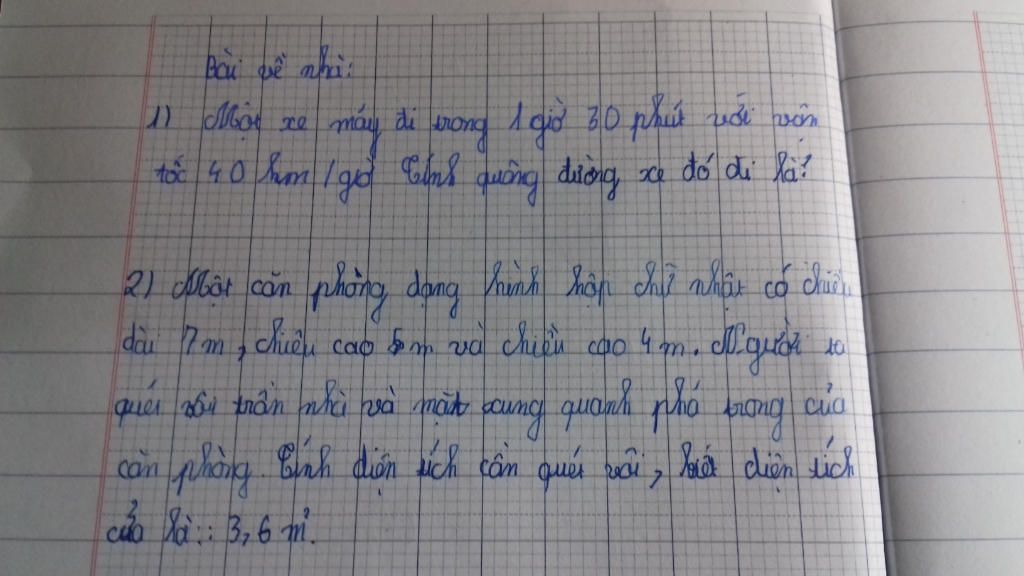 Bài về nhà:
1) Một xe máy đi trong 1 giờ 30 phút với vận
tốc 40 km/giờ Tính quãng đường xe đó đi là?
2) Một căn phòng dạng hình hộp chữ nhật có chiều
dài 7m, chiều cao 5m và chiều cao 4m. Người ta
quét vôi trần nhà và mặt xung quanh phía trong của
căn phòng. Tính diện tích cần quét vôi, biết diện tích
cửa là:: 3,6 m².